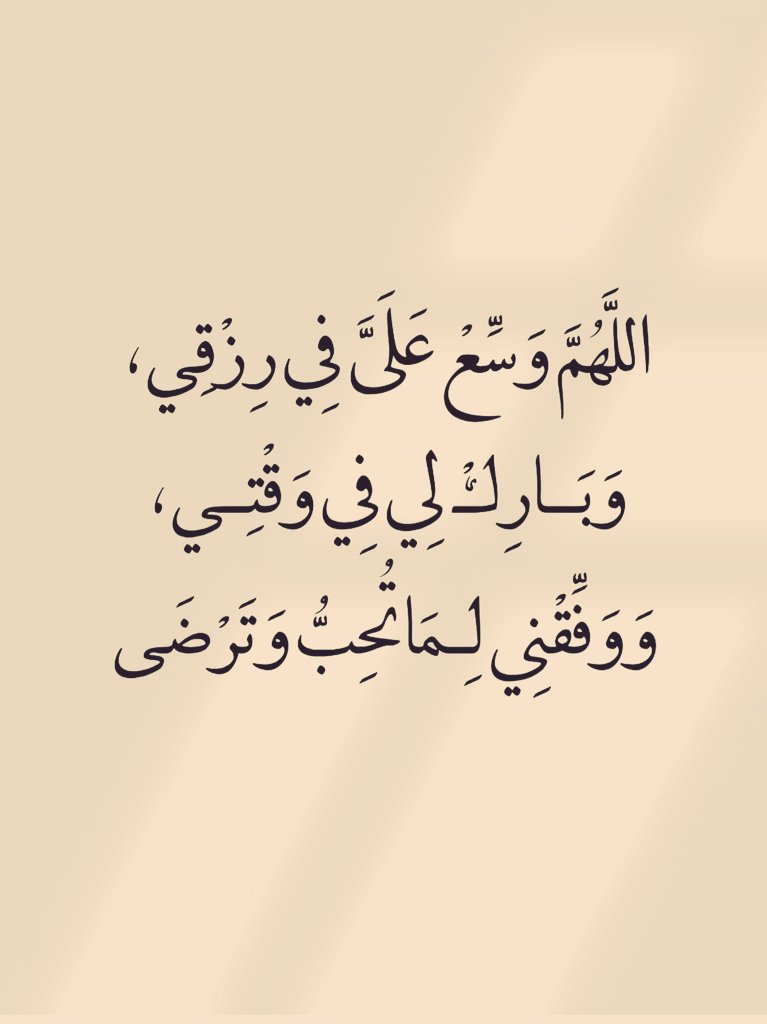 اللَّهُمَّ وَسِّعْ عَلَىَّ فِي رِزْقِي،
وَبَـارِكْ لِي فِي وَقْتِـي،
وَوَفِّقْنِي لِـمَا تُحِبُّ وَتَرْضَى